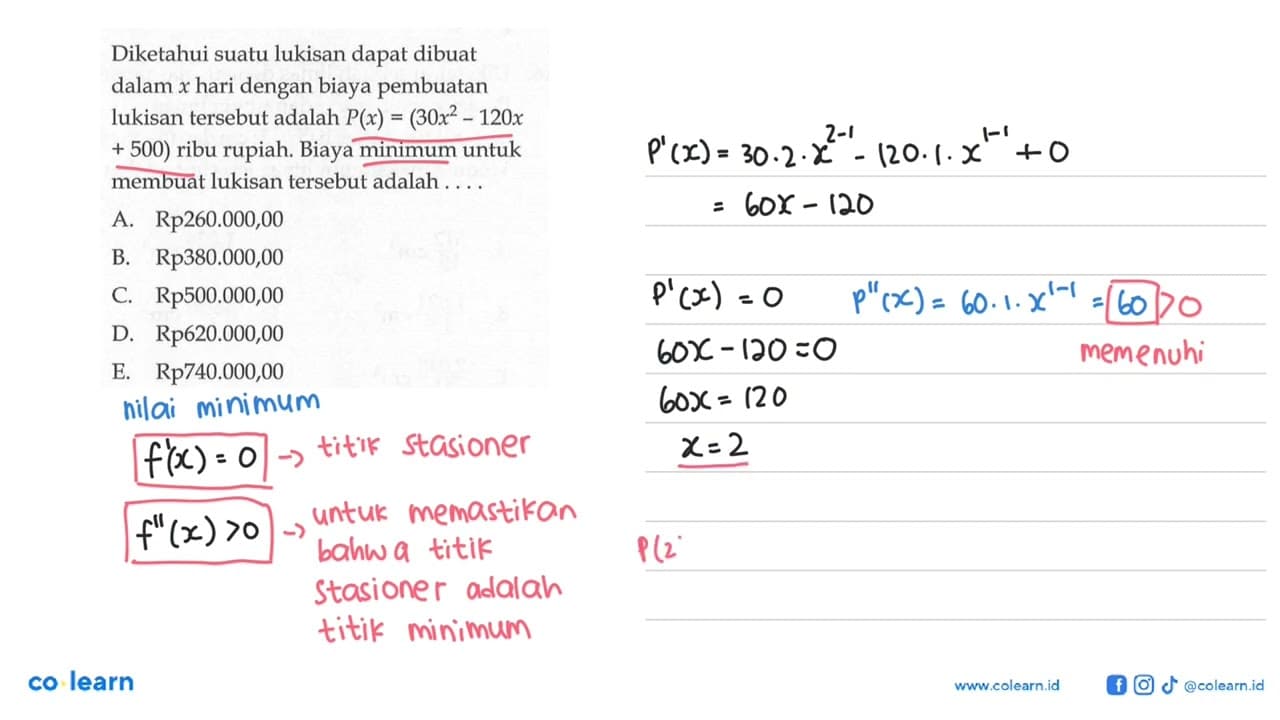 Diketahui suatu lukisan dapat dibuat
dalam x hari dengan biaya pembuatan
lukisan tersebut adalah P(x) = (30x² – 120x
+ 500) ribu rupiah. Biaya minimum untuk
membuat lukisan tersebut adalah . . . .
A. Rp260.000,00
B. Rp380.000,00
C. Rp500.000,00
D. Rp620.000,00
E. Rp740.000,00
nilai minimum
f'(x) = 0 → titik stasioner
f''(x) > 0 → untuk memastikan
bahwa titik
stasioner adalah
titik minimum
P'(x) = 30.2.x²⁻¹ - 120.1.x¹⁻¹ + 0
= 60x - 120
P'(x) = 0
60x - 120 = 0
60x = 120
x = 2
P''(x) = 60.1.x¹⁻¹ = 60 > 0
memenuhi
P(2
co learn
www.colearn.id
@colearn.id